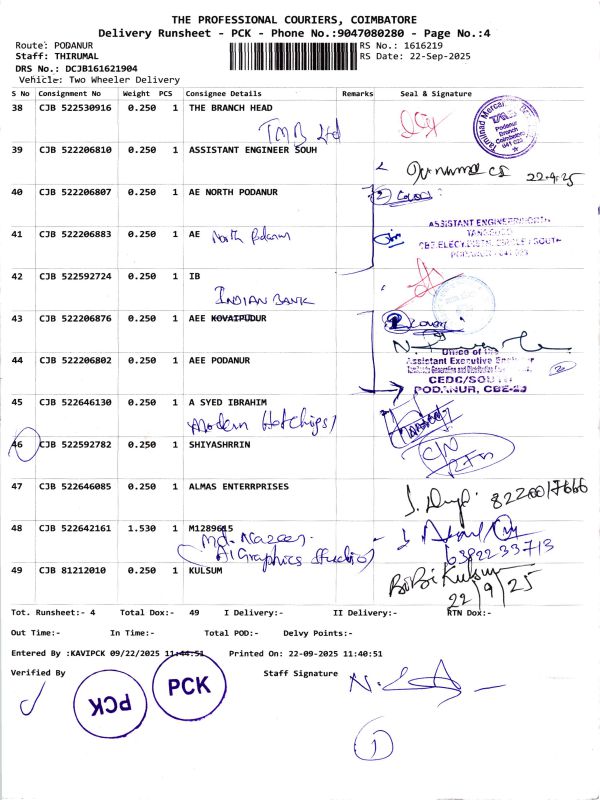 THE PROFESSIONAL COURIERS, COIMBATORE
Delivery Runsheet - PCK - Phone No.:9047080280 - Page No.:4
Route: PODANUR
RS No.: 1616219
Staff: THIRUMAL
RS Date: 22-Sep-2025
DRS No.: DCJB161621904
Vehicle: Two Wheeler Delivery
S No Consignment No Weight PCS Consignee Details Remarks Seal & Signature
38 CJB 522530916 0.250 1 THE BRANCH HEAD
TMB Ltd
Podanur Branch Coimbatore 641 023
39 CJB 522206810 0.250 1 ASSISTANT ENGINEER SOUH
22.9.25
40 CJB 522206807 0.250 1 AE NORTH PODANUR
2 Covers
41 CJB 522206883 0.250 1 AE North Podanur
ASSISTANT ENGINEER
42 CJB 522592724 0.250 1 IB
INDIAN BANK
43 CJB 522206876 0.250 1 AEE KOVAIPUDUR
44 CJB 522206802 0.250 1 AEE PODANUR
Office of the
Assistant Executive Engineer
CEDC/SOUTH
PODANUR, CBE-23
45 CJB 522646130 0.250 1 A SYED IBRAHIM
Modern
46 CJB 522592782 0.250 1 SHIYASHRRIN
C/N
RTN
47 CJB 522646085 0.250 1 ALMAS ENTERRPRISES
48 CJB 522642161 1.530 1 M1289615
Md. Nazeer
A1 Graphics Studio
6382233713
49 CJB 81212010 0.250 1 KULSUM
BiBi Kulsum
22/9/25
Tot. Runsheet:- 4 Total Dox:- 49 I Delivery:- II Delivery:- RTN Dox:-
Out Time:- In Time:- Total POD:- Delvy Points:-
Entered By :KAVIPCK 09/22/2025 11:44:51 Printed On: 22-09-2025 11:40:51
Verified By
Staff Signature
PCK
PCK
1